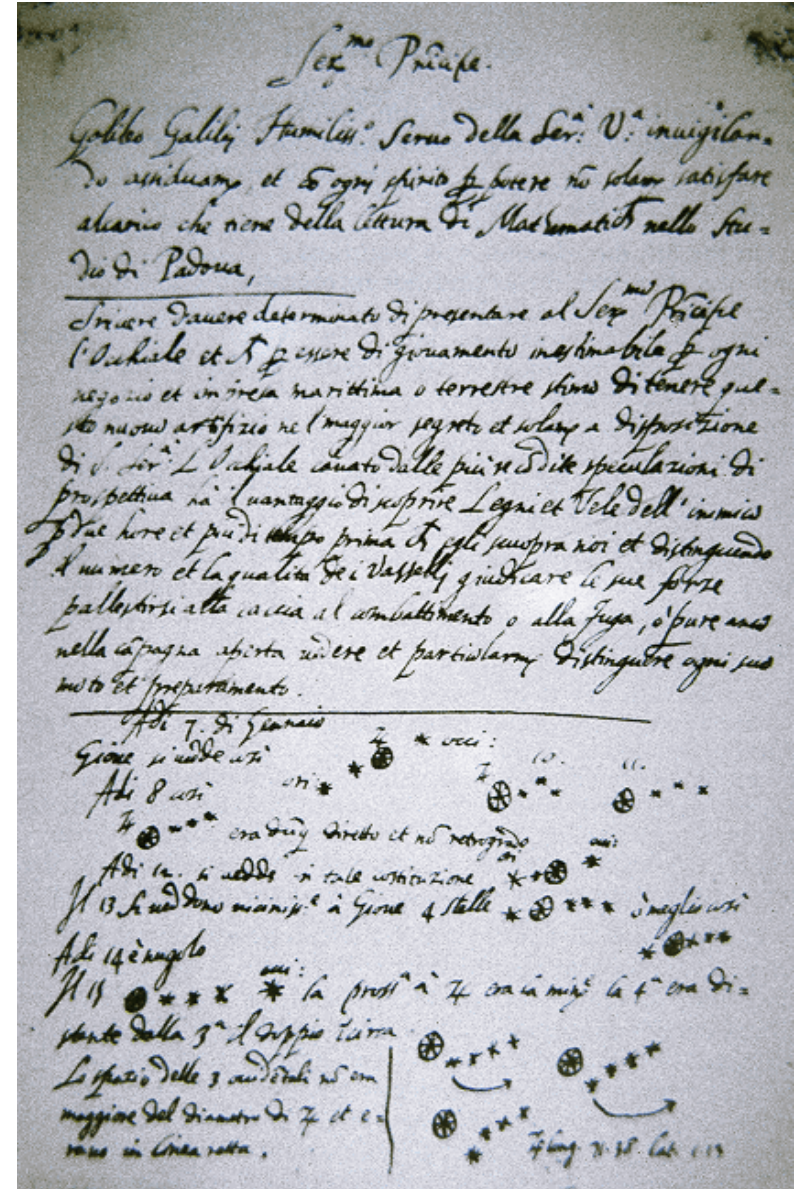 Ser.mo Principe.
Galileo Galilei Humiliss.o Servo della Ser.a V.a invigilan-
do assiduam.te, et cõ ogni spirito p potere nõ solam.te satisfare
alcarico che tiene della lettura di Mathematiche nello Stu-
dio di Padova,
Scrivere d'avere determinato di presentare al Ser.mo Principe
l'Occhiale et p essere di giovamento inestimabile p ogni
negozio et impresa marittima o terrestre stimo di tenere que-
sto nuovo artifizio nel maggior segreto et solam.te a disposizione
di S. Ser.a L'Occhiale cavato dalle più recõdite speculazioni di
prospettiva ha il vantaggio di scoprire Legni et Vele dell'inimico
p due hore et più di tempo prima egli scuopra noi et distinguendo
il numero et la qualità de i Vasselli giudicare le sue forze
pallestirsi alla caccia al combattimento o alla fuga, ò pure anco
nella cãpagna aperta vedere et particolarm.te distinguere ogni suo
moto et preparamento.
Adi 7. di Gennaio
Gione si vede così occi:
Adi 8 così ori: 10. 11.
era dũq diretto et nõ retrogrado
Adi 12. si vedde in tale costituzione occi:
Il 13 si veddono vicinis.e à Giove 4 stelle ò meglio così
Adi 14 è nugolo
Il 15 occi: la pross.a à ♃ era la min.e la 4.a era di-
stante dalla 3.a il doppio
Lo spazio delle 3 occidẽtali nõ era
maggiore del diametro di ♃ et e-
rano in linea retta.
♃ long. lat.